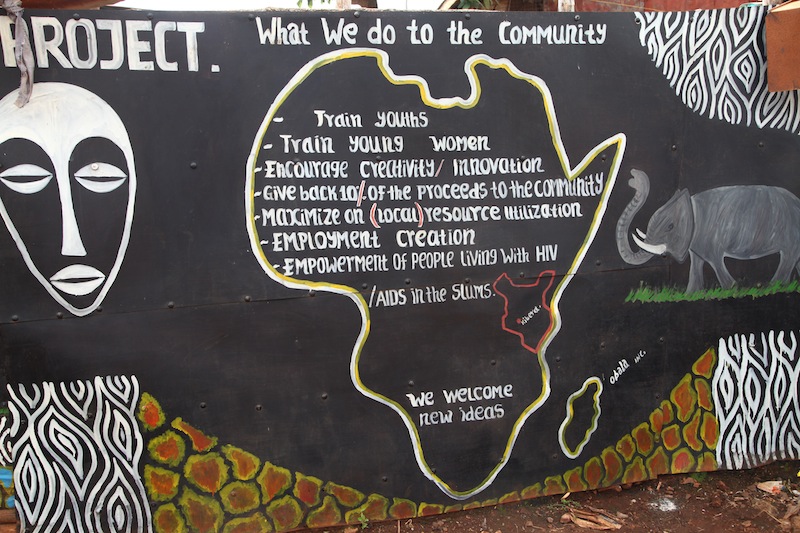 PROJECT.
What We do to the Community
- Train youths
- Train young women
- Encourage creativity/ innovation
- Give back 10% of the proceeds to the community
- Maximize on (local) resource utilization
- EMPLOYMENT creation
- EMPOWERMENT of people living with HIV
/AIDS in the slums.
kibera.
We welcome
new ideas